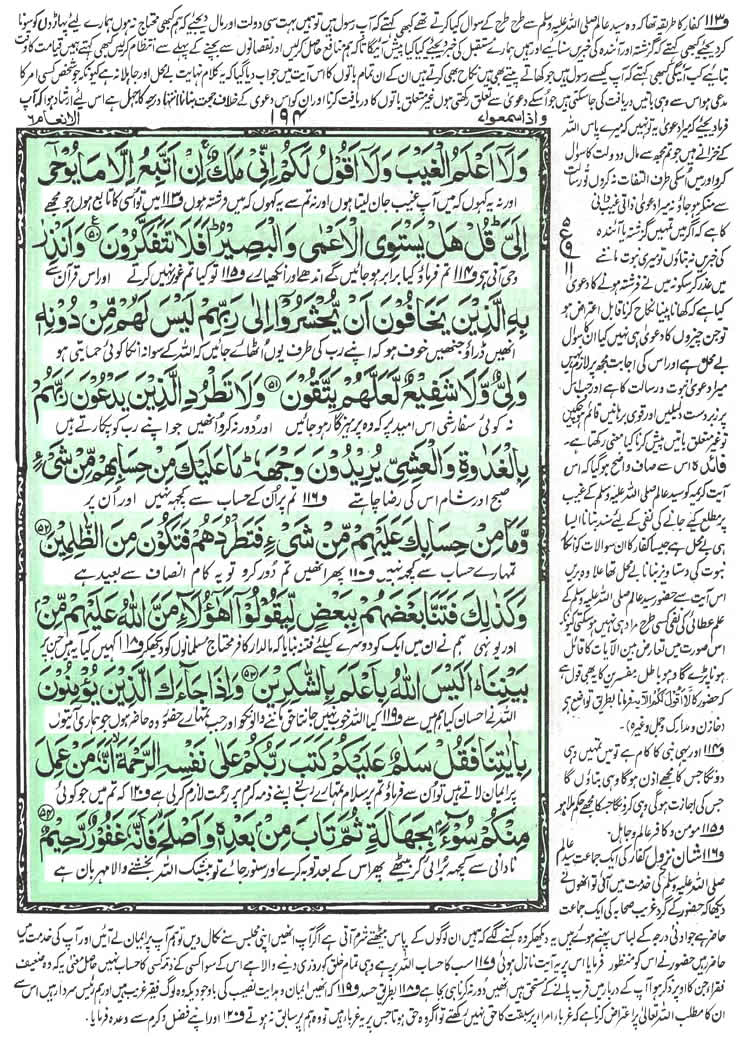 و١١٣ کفار کا طریقہ تھا کہ وہ سید عالم صلی اللہ علیہ وسلم سے طرح طرح کے سوال کیا کرتے تھے کبھی کہتے کہ آپ رسول ہیں تو ہمیں بہت سی دولت اور مال دیجئے کہ ہم کبھی محتاج نہ ہوں ہمارے لیے پہاڑوں کو سونا
کر دیجئے کبھی کہتے کہ گزشتہ اور آئندہ کی خبریں سنائیے اور ہمیں ہمارے مستقبل کی خبر دیجئے کیا کیا پیش آئے گا تاکہ ہم منافع حاصل کریں اور نقصانوں سے بچنے کے پہلے سے انتظام کر لیں کبھی کہتے ہمیں قیامت کا وقت
بتائیے کب آئیگی کبھی کہتے کہ آپ کیسے رسول ہیں جو کھاتے پیتے بھی ہیں نکاح بھی کرتے ہیں ان کے ان تمام باتوں کا اس آیت میں جواب دیا گیا کہ یہ کلام نہایت بے محل اور جاہلانہ ہے کیونکہ جو شخص کسی امر کا
مدعی ہو اس سے وہی باتیں دریافت کی جاسکتی ہیں جو اسکے دعویٰ سے تعلق رکھتی ہوں غیر متعلق باتوں کا دریافت کرنا اور ان کو اس دعویٰ کے خلاف حجت بنانا انتہا درجہ کا جہل ہے اس لیے ارشاد ہوا کہ آپ
الانعام ٦ ١٩٤ واذاسمعوا ٧
وَلَآ اَعْلَمُ الْغَيْبَ وَلَآ اَقُوْلُ لَكُمْ اِنِّيْ مَلَكٌ ۚ اِنْ اَتَّبِعُ اِلَّا مَا يُوْحٰٓى
اور نہ یہ کہوں کہ میں آپ غیب جان لیتا ہوں اور نہ تم سے یہ کہوں کہ میں فرشتہ ہوں و١١٣ میں تو اسی کا تابع ہوں جو مجھے
اِلَيَّ ؕ قُلْ هَلْ يَسْتَوِي الْاَعْمٰى وَالْبَصِيْرُ ؕ اَفَلَا تَتَفَكَّرُوْنَ ﴿٥٠﴾ وَاَنْذِرْ
وحی آتی ہے و١١٤ تم فرماؤ کیا برابر ہو جائیں گے اندھے اور انکھیارے و١١٥ تو کیا تم غور نہیں کرتے اور اس قرآن سے
بِهِ الَّذِيْنَ يَخَافُوْنَ اَنْ يُّحْشَرُوْٓا اِلٰى رَبِّهِمْ لَيْسَ لَهُمْ مِّنْ دُوْنِهٖ
انھیں ڈراؤ جنھیں خوف ہو کہ اپنے رب کی طرف یوں اٹھائے جائیں کہ اللہ کے سوا نہ انکا کوئی حمایتی ہو
وَلِيٌّ وَّلَا شَفِيْعٌ لَّعَلَّهُمْ يَتَّقُوْنَ ﴿٥١﴾ وَلَا تَطْرُدِ الَّذِيْنَ يَدْعُوْنَ رَبَّهُمْ
نہ کوئی سفارشی اس امید پر کہ وہ پرہیزگار ہو جائیں اور دور نہ کرو انھیں جو اپنے رب کو پکارتے ہیں
بِالْغَدٰوةِ وَالْعَشِيِّ يُرِيْدُوْنَ وَجْهَهٗ ؕ مَا عَلَيْكَ مِنْ حِسَابِهِمْ مِّنْ شَيْءٍ
صبح اور شام اس کی رضا چاہتے و١١٦ تم پر ان کے حساب سے کچھ نہیں اور ان پر
وَّمَا مِنْ حِسَابِكَ عَلَيْهِمْ مِّنْ شَيْءٍ فَتَطْرُدَهُمْ فَتَكُوْنَ مِنَ الظّٰلِمِيْنَ ﴿٥٢﴾
تمہارے حساب سے کچھ نہیں و١١٧ پھر انھیں تم دور کرو تو یہ کام انصاف سے بعید ہے
وَكَذٰلِكَ فَتَنَّا بَعْضَهُمْ بِبَعْضٍ لِّيَقُوْلُوْٓا اَهٰٓؤُلَآءِ مَنَّ اللّٰهُ عَلَيْهِمْ مِّنْۢ
اور یونہی ہم نے ان میں ایک کو دوسرے کیلئے فتنہ بنایا کہ مالدار کافر محتاج مسلمانوں کو دیکھ کر و١١٨ کہیں کیا یہ ہیں جن پر
بَيْنِنَا ؕ اَلَيْسَ اللّٰهُ بِاَعْلَمَ بِالشّٰكِرِيْنَ ﴿٥٣﴾ وَاِذَا جَآءَكَ الَّذِيْنَ يُؤْمِنُوْنَ
اللہ نے احسان کیا ہم میں سے و١١٩ کیا اللہ خوب نہیں جانتا حق ماننے والوں کو اور جب تمہارے حضور وہ حاضر ہوں جو ہماری آیتوں
بِاٰيٰتِنَا فَقُلْ سَلٰمٌ عَلَيْكُمْ كَتَبَ رَبُّكُمْ عَلٰى نَفْسِهِ الرَّحْمَةَ ۙ اَنَّهٗ مَنْ عَمِلَ
پر ایمان لاتے ہیں تو ان سے فرماؤ تم پر سلام تمہارے رب نے اپنے ذمہ کرم پر رحمت لازم کر لی ہے و١٢٠ کہ تم میں جو کوئی
مِنْكُمْ سُوْٓءًۢا بِجَهَالَةٍ ثُمَّ تَابَ مِنْۢ بَعْدِهٖ وَاَصْلَحَ ۙ فَاَنَّهٗ غَفُوْرٌ رَّحِيْمٌ ﴿٥٤﴾
نادانی سے کچھ برائی کر بیٹھے پھر اس کے بعد توبہ کرے اور سنور جائے تو بیشک اللہ بخشنے والا مہربان ہے
فرما دیجئے کہ میرا دعویٰ یہ تو نہیں کہ میرے پاس اللہ
کے خزانے ہیں جو تم مجھ سے مال و دولت کا سوال
کرو اور میں اسکی طرف التفات نہ کروں تو رسالت
سے منکر ہو جاؤ نہ میرا دعویٰ ذاتی غیب دانی
کا ہے کہ اگر میں تمہیں گزشتہ یا آئندہ
کی خبریں نہ بتاؤں تو میری نبوت ماننے
میں عذر کر سکو نہ میں نے فرشتہ ہونے کا دعویٰ
کیا ہے کہ کھانا پینا نکاح کرنا قابل اعتراض ہو
تو جن چیزوں کا دعویٰ ہی نہیں کیا ان کا سوال
بے محل ہے اور اس کی اجابت مجھ پر لازم نہیں
میرا دعویٰ نبوت و رسالت کا ہے اور جب اس
پر زبردست دلیلیں اور قوی برہانیں قائم ہو چکیں
تو غیر متعلق باتیں پیش کرنا کیا معنی رکھتا ہے۔
فائدہ اس سے صاف واضح ہو گیا کہ اس
آیت کریمہ کو سید عالم صلی اللہ علیہ وسلم کے غیب
پر مطلع کیے جانے کی نفی کے لیے سند بنانا ایسا
ہی بے محل ہے جیسا کفار کا ان سوالات کو انکار
نبوت کی دستاویز بنانا بے محل تھا علاوہ بریں
اس آیت سے حضور سید عالم صلی اللہ علیہ وسلم کے
علم عطائی کی نفی کسی طرح مراد ہی نہیں ہو سکتی کیونکہ
اس صورت میں تعارض بین الآیات کا قائل
ہونا پڑے گا وہو باطل مفسرین کا یہ بھی قول ہے
کہ حضور کا لَآ اَقُوْلُ لَكُمْ الآیہ فرمانا بطریق تواضع ہے
(خازن و مدارک و جمل وغیرہ)۔
و١١٤ اور یہی نبی کا کام ہے تو میں تمہیں وہی
دونگا جس کا مجھے اذن ہوگا وہی بتاؤں گا
جس کی اجازت ہوگی وہی کرونگا جسکا مجھے حکم ملا ہو
و١١٥ مومن و کافر عالم و جاہل۔
و١١٦ شان نزول کفار کی ایک جماعت سید عالم
صلی اللہ علیہ وسلم کی خدمت میں آئی تو انھوں نے
دیکھا کہ حضور کے گرد غریب صحابہ کی ایک جماعت
حاضر ہے جو ادنیٰ درجہ کے لباس پہنے ہوئے ہیں یہ دیکھ کر وہ کہنے لگے کہ ہمیں ان لوگوں کے پاس بیٹھتے شرم آتی ہے اگر آپ انھیں اپنی مجلس سے نکال دیں تو ہم آپ پر ایمان لے آئیں اور آپ کی خدمت میں
حاضر رہیں حضور نے اس کو منظور نہ فرمایا اس پر یہ آیت نازل ہوئی و١١٧ سب کا حساب اللہ پر ہے وہی تمام خلق کو روزی دینے والا ہے اس کے سوا کسی کے ذمہ کسی کا حساب نہیں حاصل معنی یہ کہ وہ ضعیف
فقراء جن کا اوپر ذکر ہوا آپ کے دربار میں قرب پانے کے مستحق ہیں انھیں دور نہ کرنا ہی بجا ہے و١١٨ بطریق حسد و١١٩ کہ انھیں ایمان و ہدایت نصیب کی باوجودیکہ وہ لوگ فقیر غریب ہیں اور ہم رئیس سردار ہیں اس سے
ان کا مطلب اللہ تعالیٰ پر اعتراض کرنا ہے کہ غرباء امراء پر سبقت کا حق نہیں رکھتے تو اگر وہ حق ہوتا جس پر یہ غرباء ہیں تو وہ ہم پر سابق نہ ہوتے و١٢٠ اور اپنے فضل و کرم سے وعدہ فرمایا۔